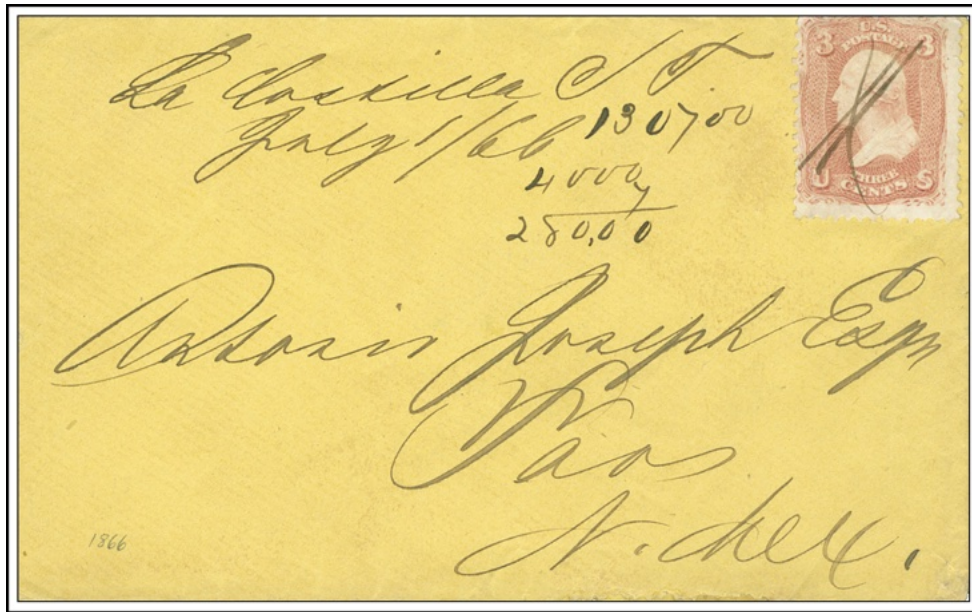 La Costilla C. T.
July 1/66
130700
4000 7
280,00
3 U.S. 3
POSTAGE
U THREE S
CENTS
Antonio Joseph Esqr
Taos
N. Mex.
1866